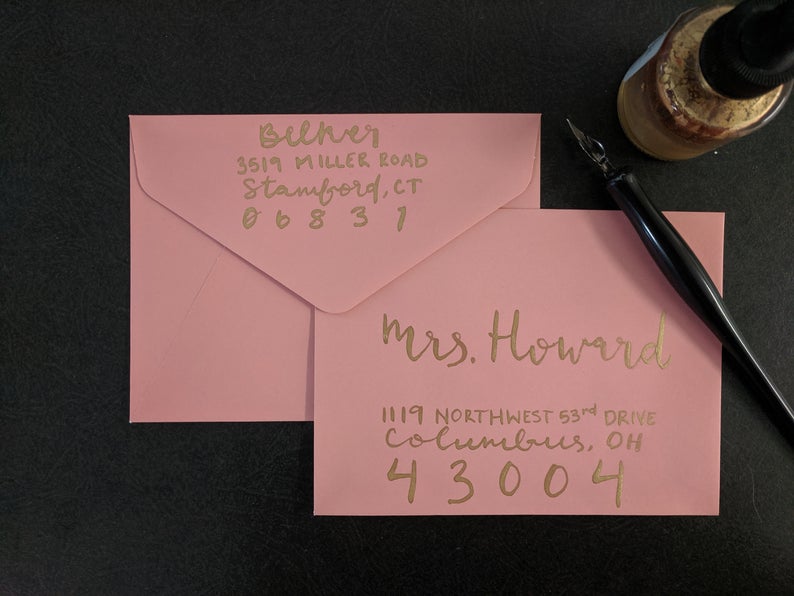 Belker
3519 MILLER ROAD
Stamford, CT
06831
Mrs. Howard
1119 NORTHWEST 53rd DRIVE
Columbus, OH
43004